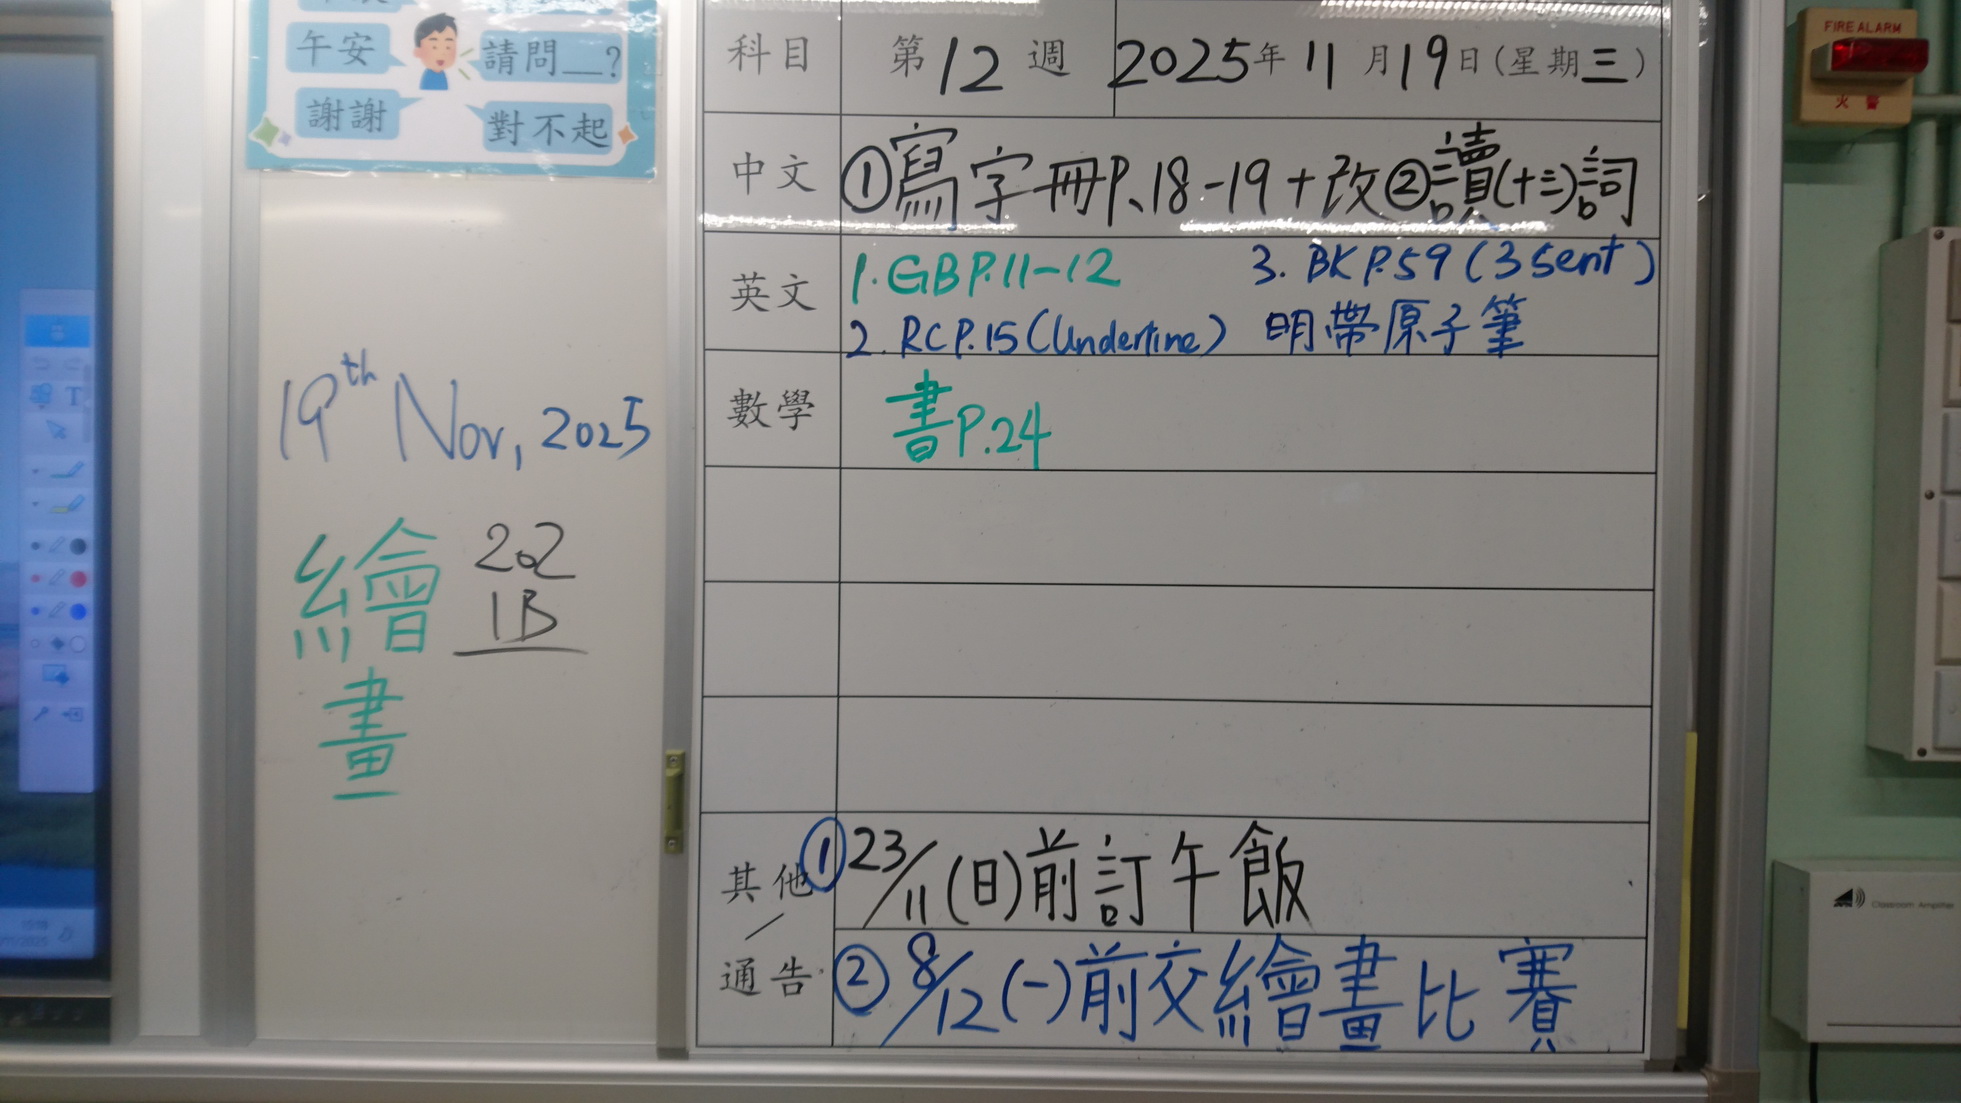 午安
請問__?
謝謝
對不起
19th Nov, 2025
繪畫
202
1B
科目 第12週 2025年11月19日(星期三)
中文 ①寫字冊P.18-19+改②讀(十三)詞
英文 1. GB P.11-12 3. BK P.59 (3 sent)
2. RC P.15 (Underline) 明帶原子筆
數學 書P.24
其他/通告
① 23/11(日)前訂午飯
② 8/12(一)前交繪畫比賽
FIRE ALARM
火警
Classroom Amplifier